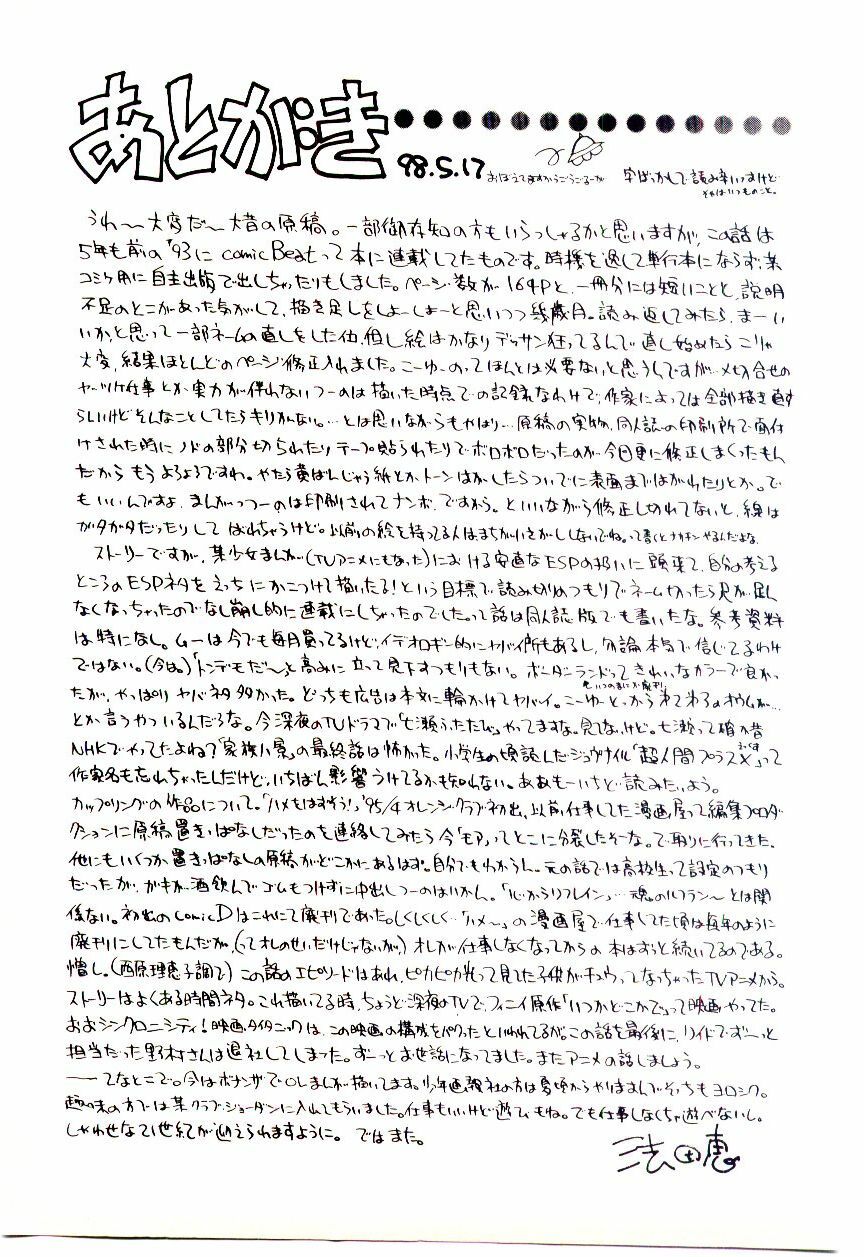 あとがき
98.5.17
おぼえてますかうごうごるーが
字ばっかしで読み辛いっすけど…
それはいつものこと。
うわ〜大変だ〜大昔の原稿。一部御存知の方もいらっしゃるかと思いますが、この話は
5年も前の'93にcomic Beatって本に連載してたものです。時機を逸して単行本にならず、某
コミケ用に自主出版で出しちゃったりもしました。ページ数が164Pと、一冊分には短いことと、説明
不足のとこがあった気がして、描き足しをしよーしよーと思いつつ幾歳月。読み返してみたら、まーい
いかと思って一部ネームの直しをした他、但し絵はかなりデッサン狂ってるんで直し始めたらこりゃ
大変、結果ほとんどのページ修正入れました。こーゆーのってほんとは必要ないと思うんですが…〆切合せの
ヤッツケ仕事とか、実力が伴わないっつーのは描いた時点での記録なわけで、作家によっては全部描き直す
らしいけどそんなことしてたらキリがない。…とは思いながらもやはり…原稿の実物、同人誌の印刷所で面付
けされた時にノドの部分切られたりテープ貼られたりでボロボロだったのが今回更に修正しまくったもん
だからもうよろよろですわ。やたら黄ばんじゃう紙とか、トーンはがしたらついでに表面まではがれたりとか。で
もいいんですよ、まんがっつーのは印刷されてナンボ、ですから。といいながら修正し切れてないと、線は
ガタガタだったりしてばれちゃうけど。以前の絵を持ってる人はまちがいさがししないでね。って書くとナカナカやるんだよな。
ストーリーですが、某少女まんが(TVアニメにもなった)における安直なESPの扱いに頭来て、自分の考える
ところのESPネタをえっちにかこつけて描いたる!という目標で読み切りのつもりでネーム切ったら尺が足ん
なくなっちゃったのでなし崩し的に連載にしちゃったのでした。って話は同人誌版でも書いたな。参考資料
は特になし。ムーは今でも毎月買ってるけど、イデオロギー的にヤバイ所もあるし、勿論本気で信じてるわけ
ではない。(今は。)「トンデモだ〜」と高みに立って見下すつもりもない。ボーダーランドってきれいなカラーで良かっ
といつのまにか廃刊
たが、やっぱりヤバネタ多かった。どっちも広告は本文に輪かけてヤバイ。こーゆーとっからわてわろのオウムが…
とか言うやついるんだろな。今深夜のTVドラマで「七瀬ふたたび」やってますな。見てないけど。七瀬って確か昔
NHKでやってたよね?「家族八景」の最終話は怖かった。小学生の頃読んだジュヴナイル「超人間プラスX」って
作家名も忘れちゃったしだけど、いちばん影響うけてるかも知れない。ああもーいちど読みたいよう。
カップリングの作品について。「ハメもはずそう!」'95/4オレンジクラブ初出、以前仕事してた漫画屋って編集プロダ
クションに原稿置きっぱなしだったのを連絡してみたら今「モア」ってとこに分裂したそーな。で取りに行ってきた。
他にもいくつか置きっぱなしの原稿がどこかにあるはず。自分でもわからん。元の話では高校生って設定のつもり
だったが、ガキが酒飲んでゴムもつけずに中出しっつーのはいかん。「心からリフレイン」…魂のルフラン〜とは関
係ない。初出のcomic Dはこれにて廃刊であった。しくしくしく…「ハメ〜」の漫画屋で仕事してた頃は毎年のように
廃刊にしてたもんだが、(ってオレのせいだけじゃないが)オレが仕事しなくなってからの本はずっと続いてるのである。
憎し。(西原理恵子調で)この話のエピソードはあれ、ピカピカ光って見てた子供がチュウってなっちゃったTVアニメから。
ストーリーはよくある時間ネタ。これ描いてる時、ちょうど深夜のTVで、フィニイ原作「いつかどこかで」って映画やってた。
おおシンクロニシティ!映画タイタニックは、この映画の構成をパクったといわれてるが。この話を最後に、リイドでず〜っと
担当だった野村さんは退社してしまった。ず〜っとお世話になってました。またアニメの話しましょう。
——てなとこで。今はボナンザで○しまが描いてます。少年画報社の方は夏頃からやりますんでそっちもヨロシク。
趣味の方では某クラブ・ジョーダンに入れてもらいました。仕事もいいけど遊びもね。でも仕事しなくちゃ遊べないし。
しあわせな21世紀が迎えられますように。ではまた。
法田恵